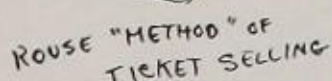 ROUSE "METHOD" OF
TICKET SELLING